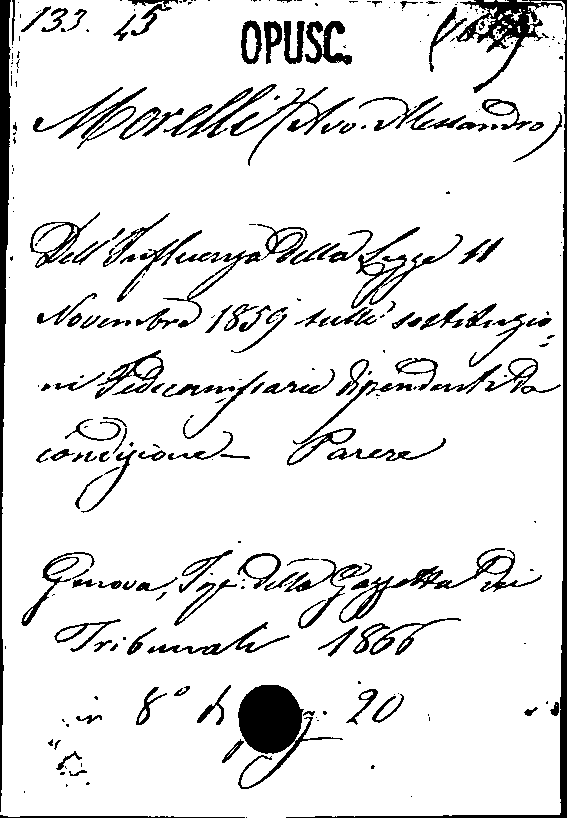 133. 45
OPUSC.
Morelli (Avv. Alessandro)
Dell'Influenza della Legge 11
Novembre 1859 sulle sostituzio-
ni Fedecommissarie dipendenti da
condizione - Parere
Genova, Tip. della Gazzetta dei
Tribunali 1866
in 8° di pag. 20